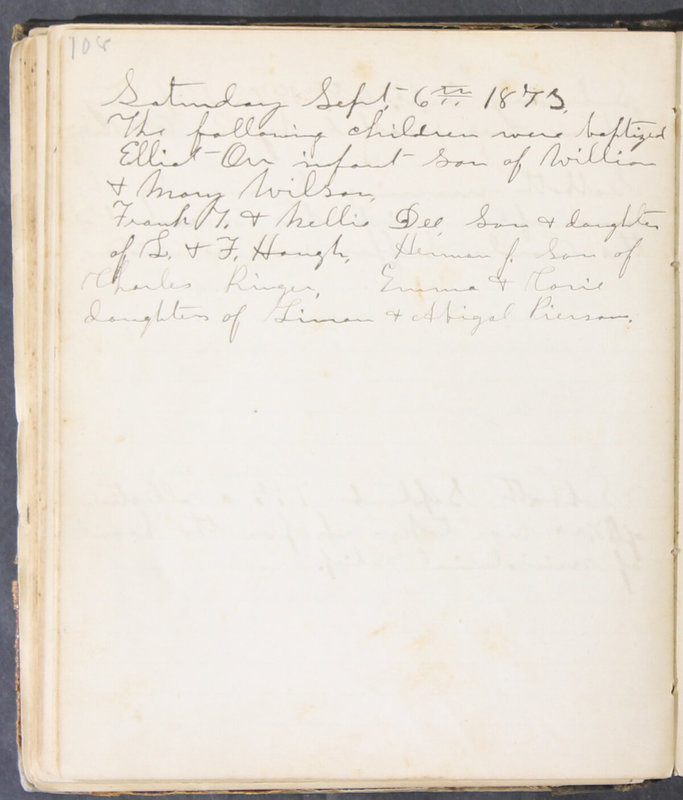 108
Saturday Sept. 6th 1873.
The following children were baptized
Elliot Orr infant son of William
& Mary Wilson,
Frank T. & Nellie Dee, Son & daughter
of L. & F. Hough, Herman J. Son of
Charles Ringer, Emma &
daughters of Simon & Abigal Pierson.